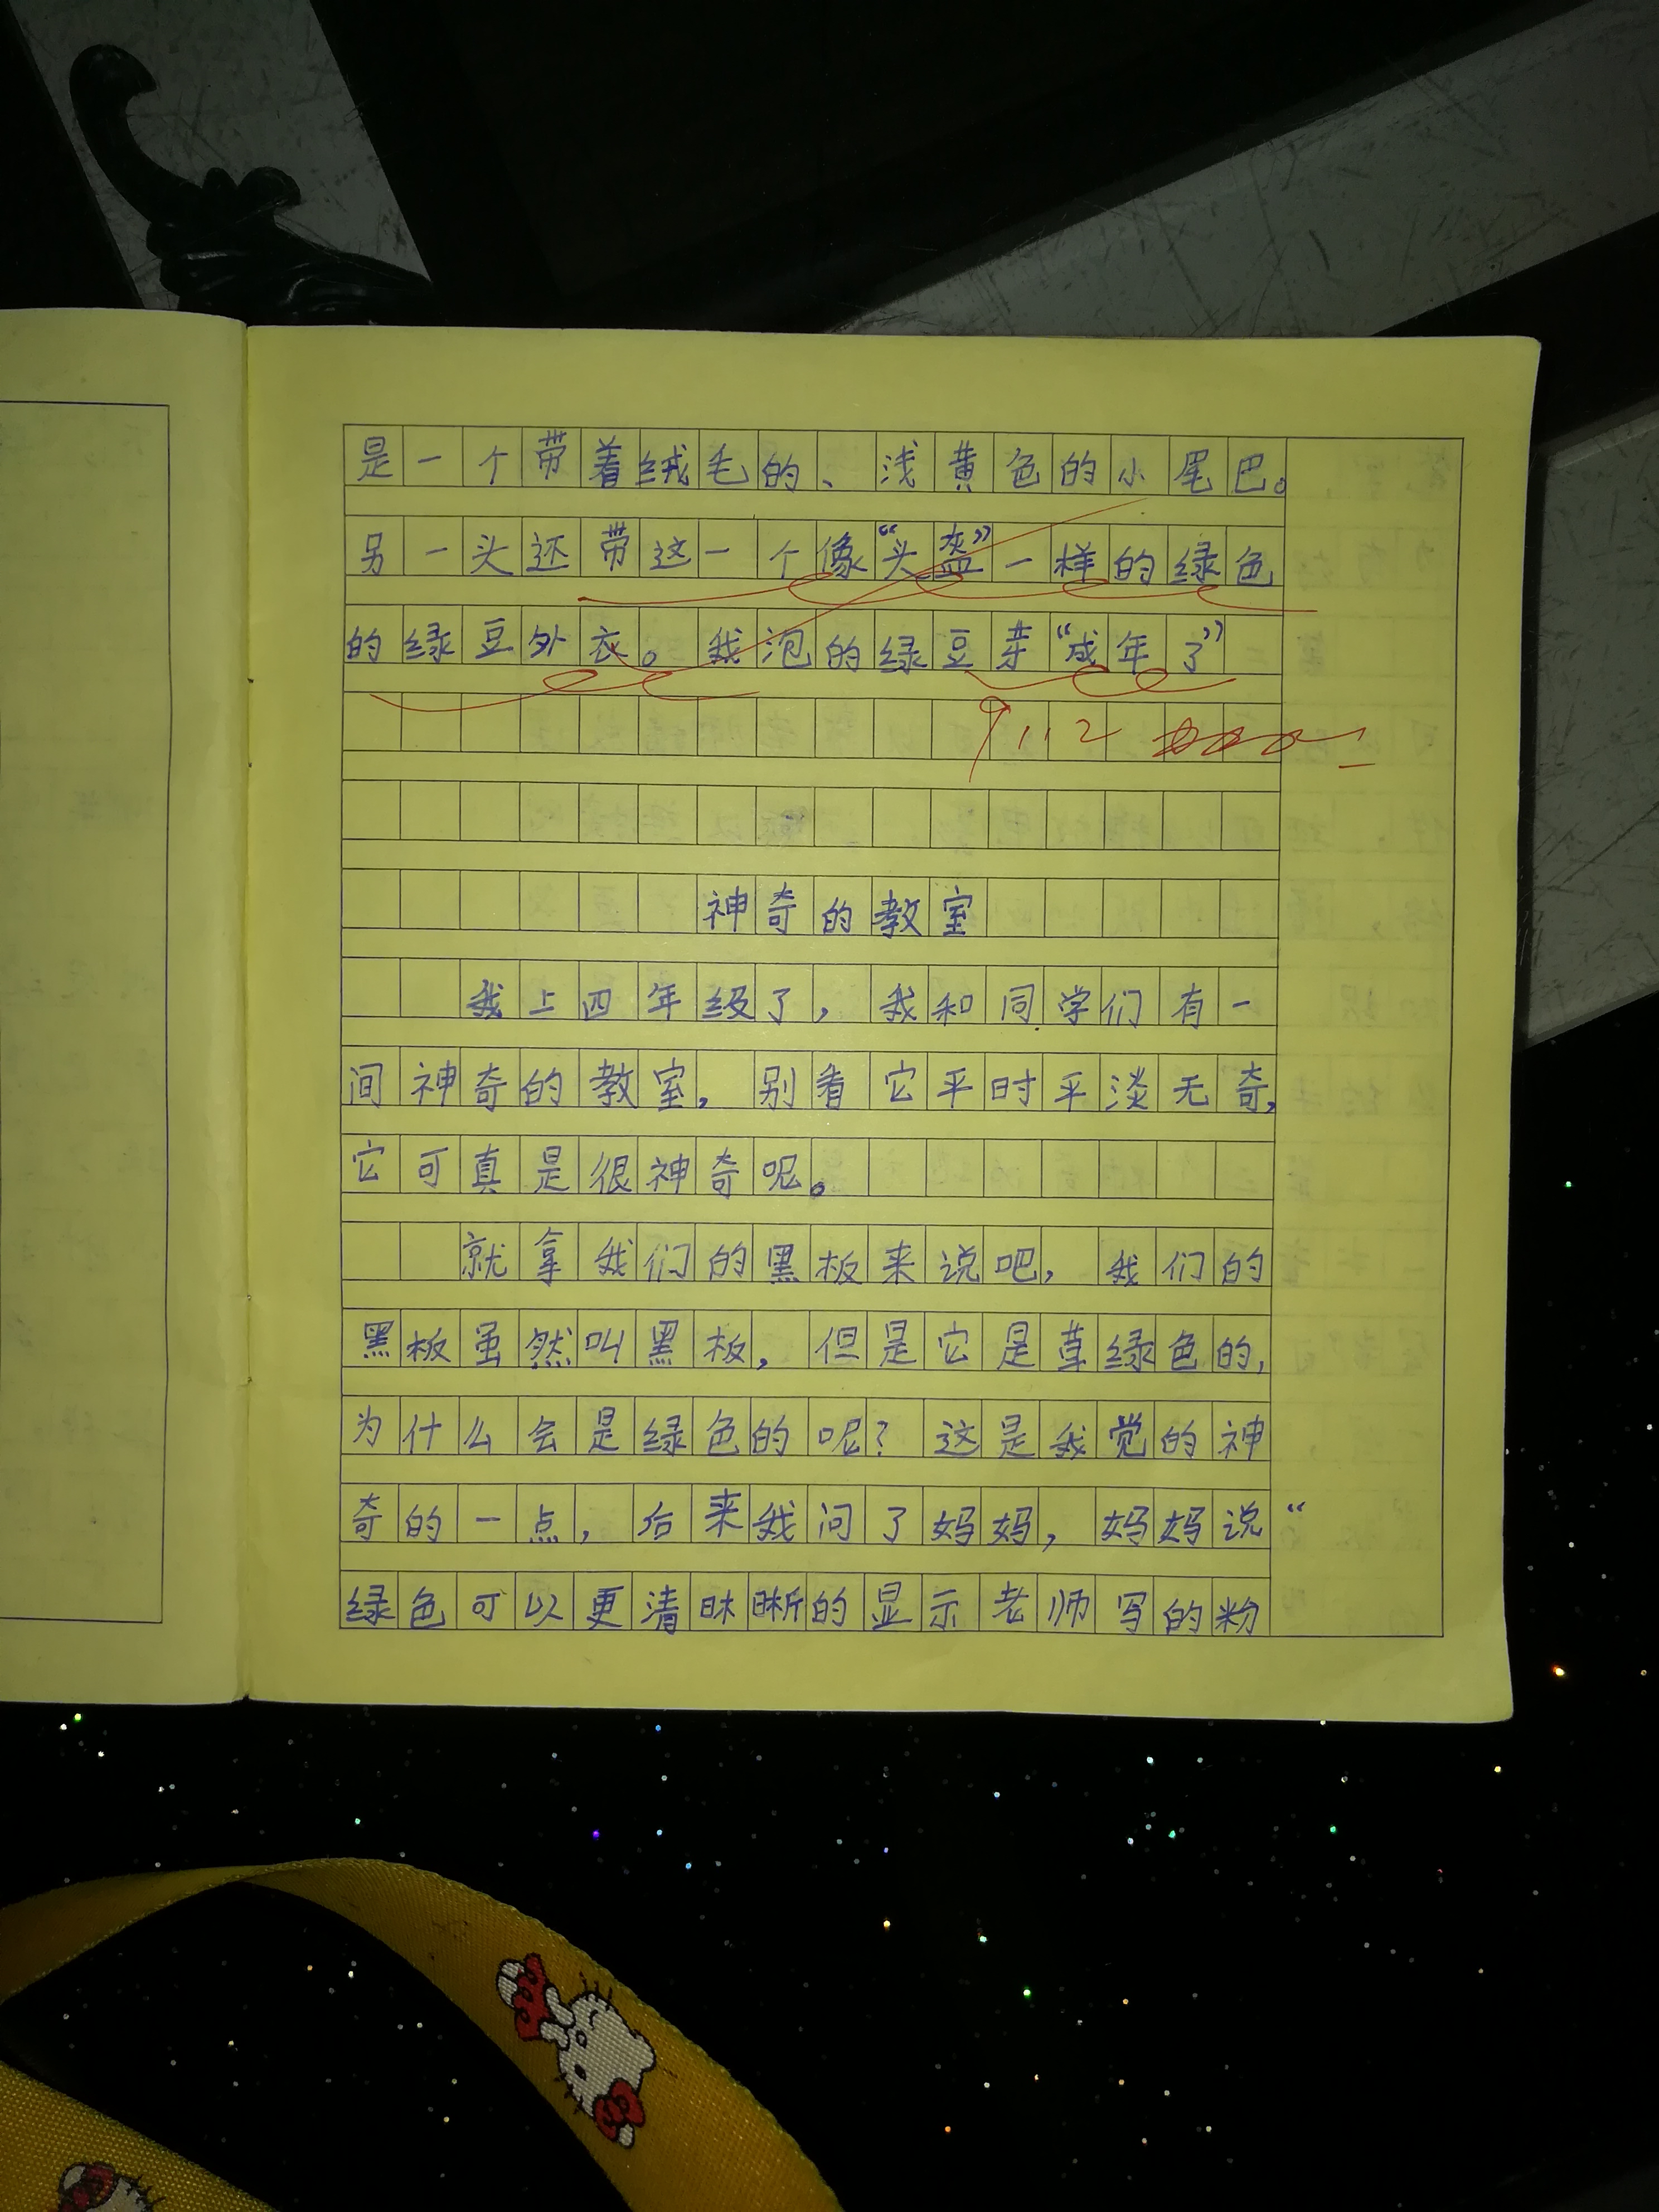 是一个带着绒毛的、浅黄色的小尾巴。
另一头还带这一个像“头盔”一样的绿色
的绿豆外衣。我泡的绿豆芽“成年了”
9.12
神奇的教室
我上四年级了，我和同学们有一
间神奇的教室，别看它平时平淡无奇，
它可真是很神奇呢。
就拿我们的黑板来说吧，我们的
黑板虽然叫黑板，但是它是草绿色的，
为什么会是绿色的呢？这是我觉的神
奇的一点，后来我问了妈妈，妈妈说“
绿色可以更清晰的显示老师写的粉